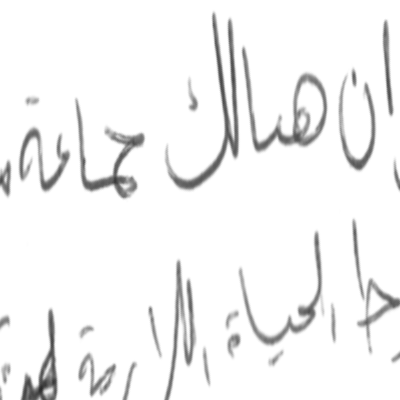 ان هنالك جماعة
الحياة اللازمة لهذه